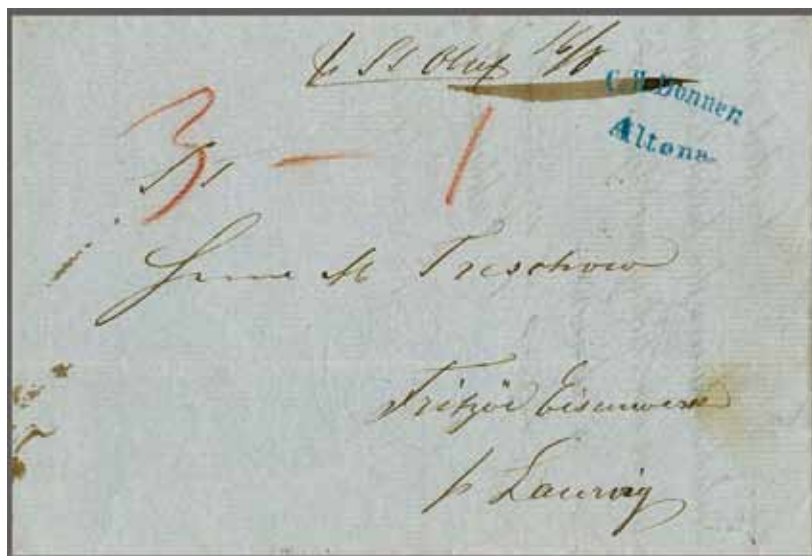 SS Oluf 16/8
C. H. Donner
Altona
3 — 1
M Treschow
Fritzöe Eisenwerk
p Laurvig